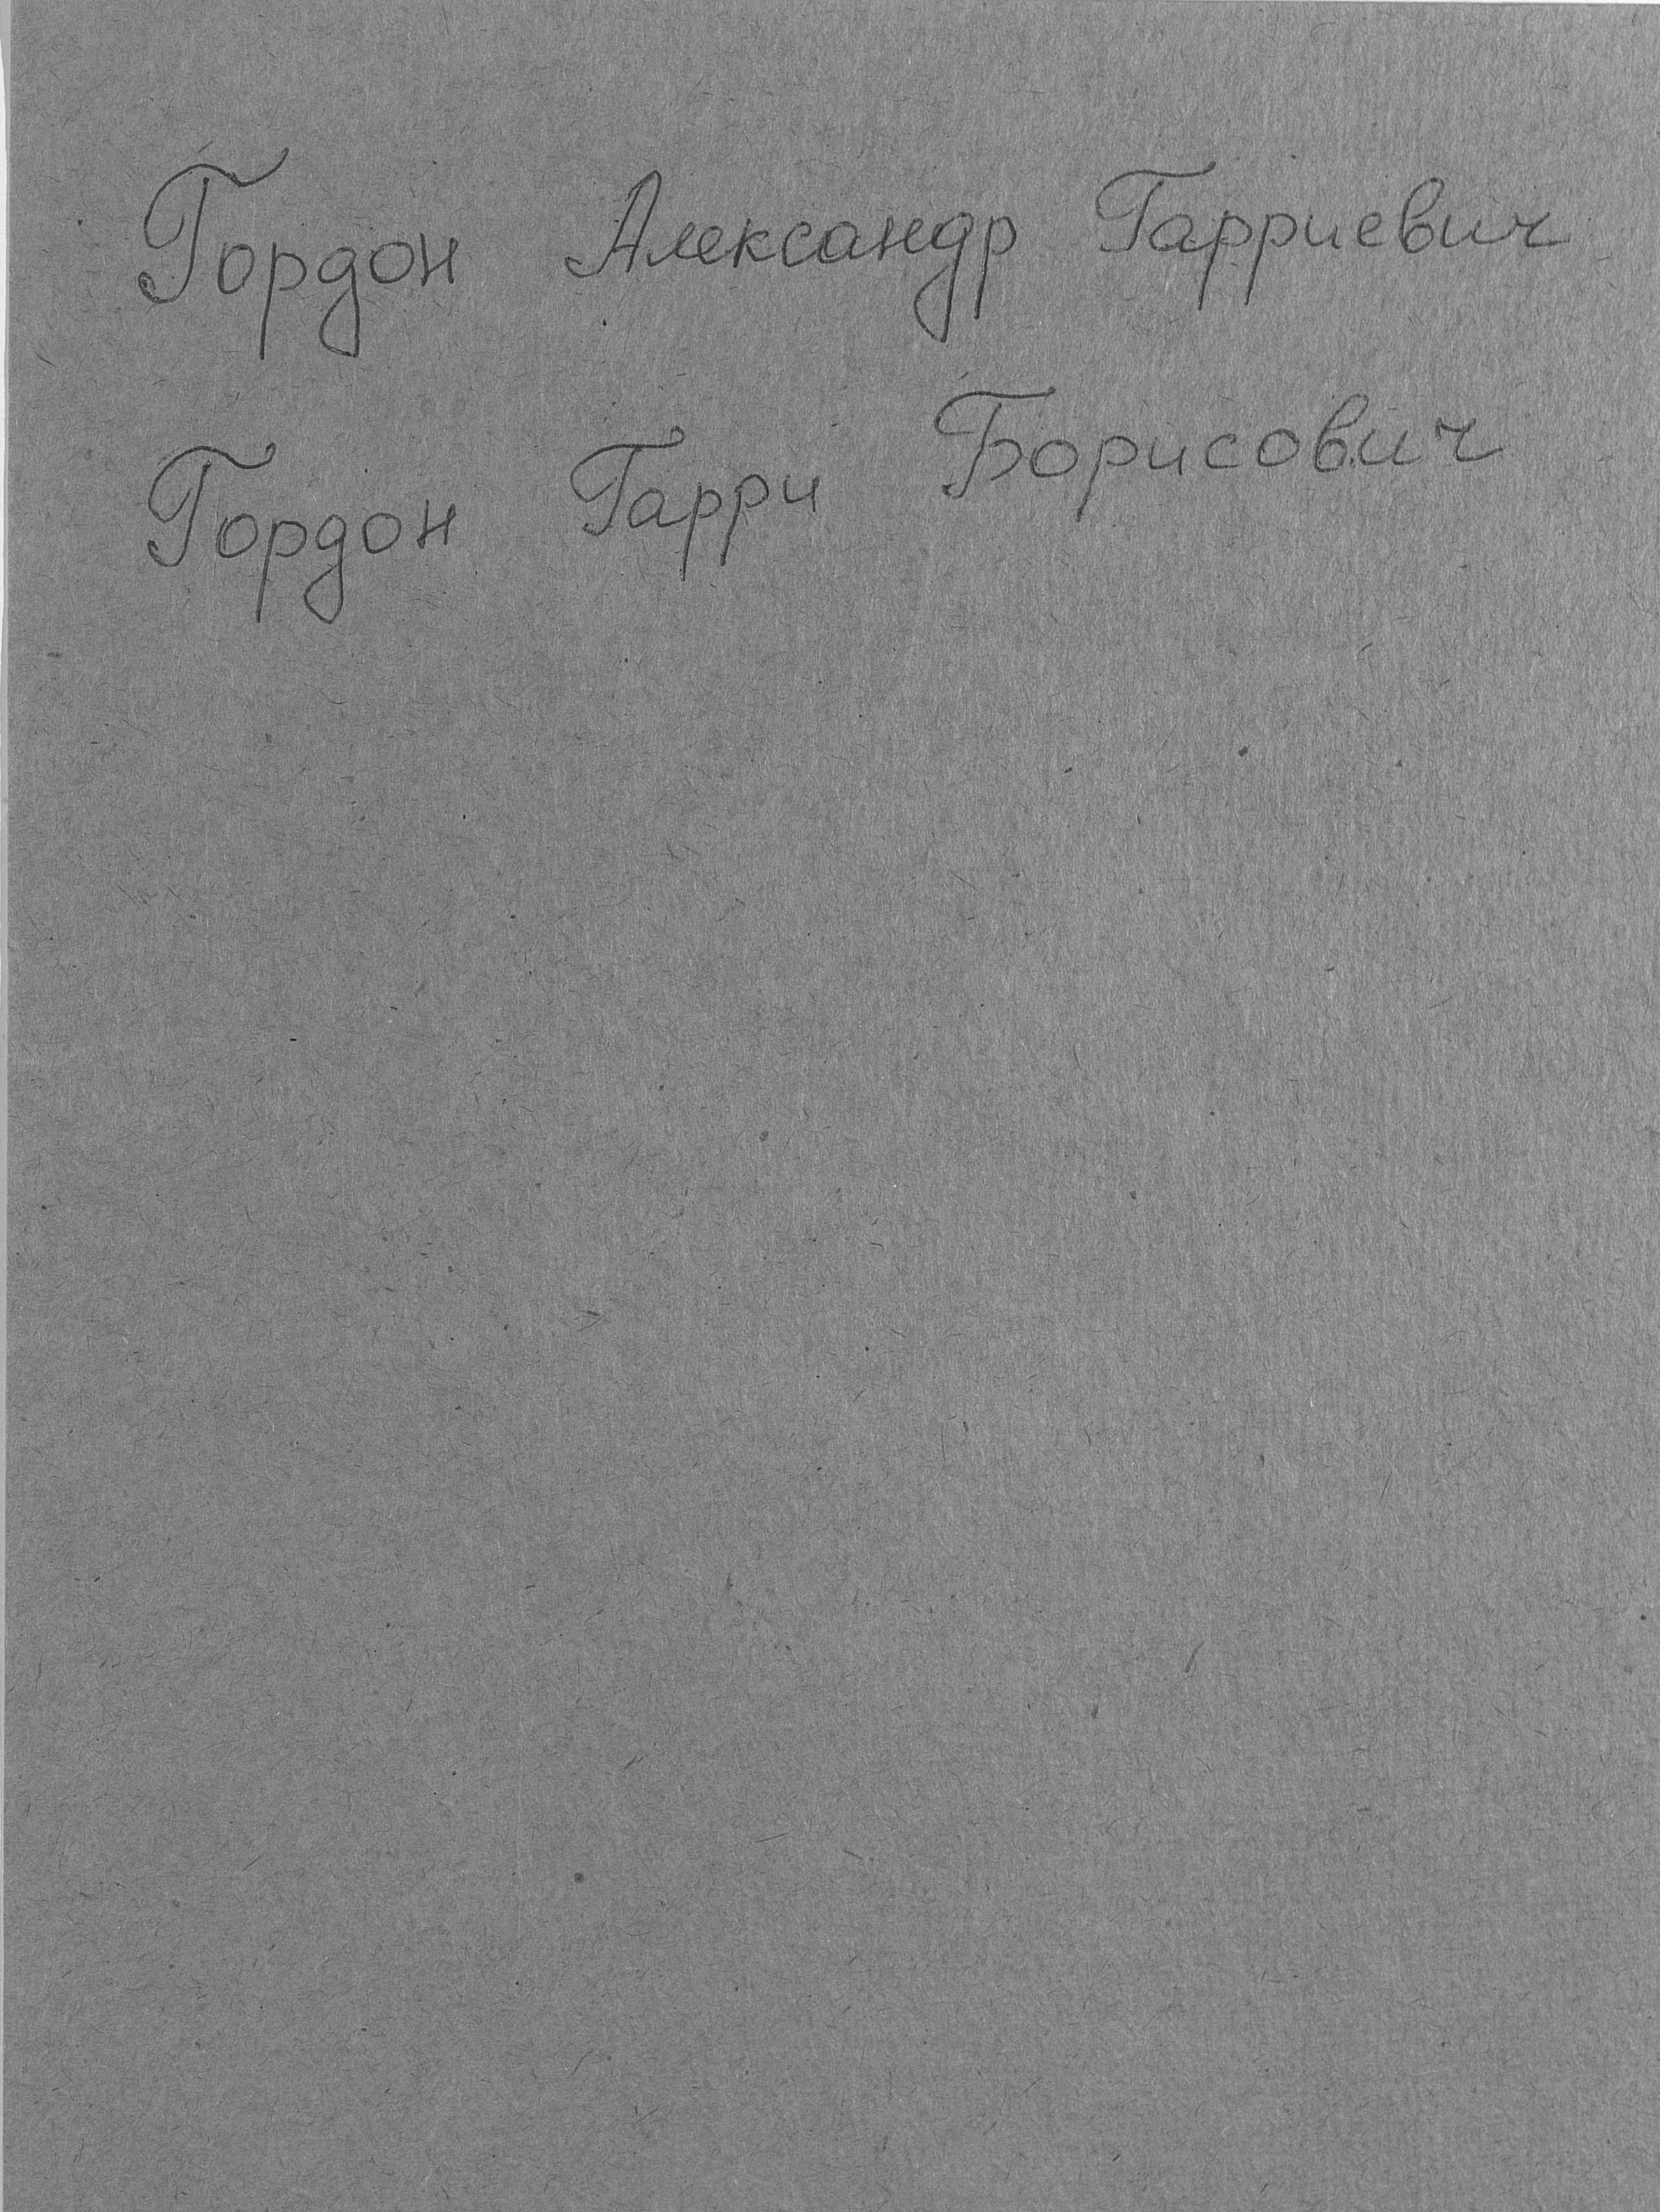 Гордон Александр Гарриевич
Гордон Гарри Борисович